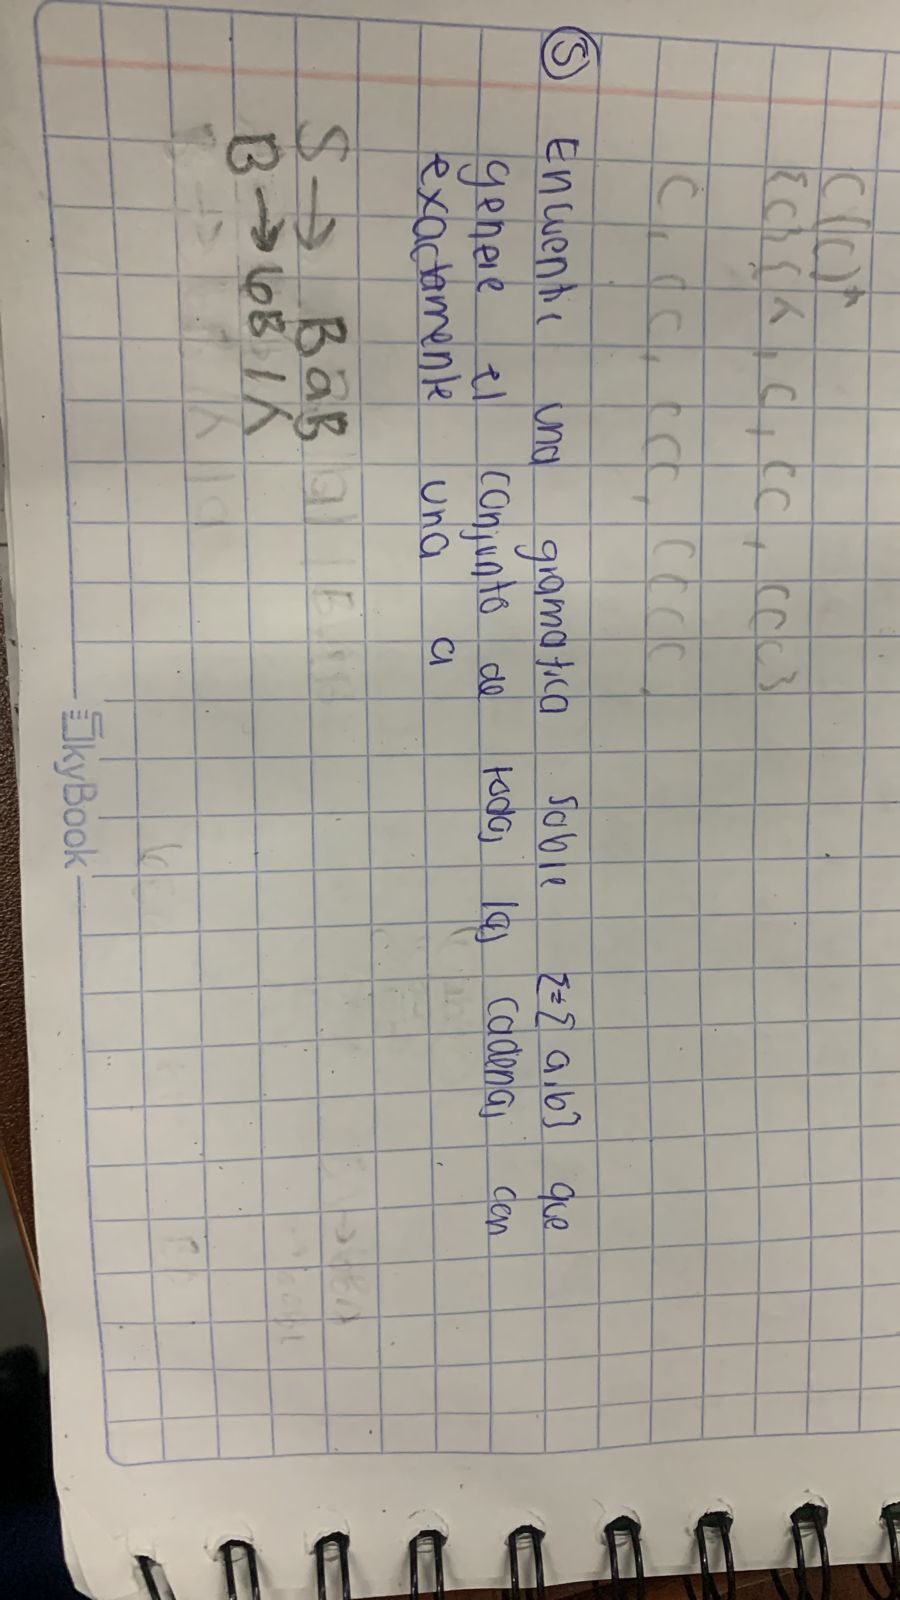 C(C)*
{C}{λ, C, CC, CCC}
C, CC, CCC, CCCC,
⑤ Encuentre una gramatica sobre Σ={a,b} que
genere el conjunto de todas las cadenas con
exactamente una a
S → BaB
B → bB|λ
SkyBook